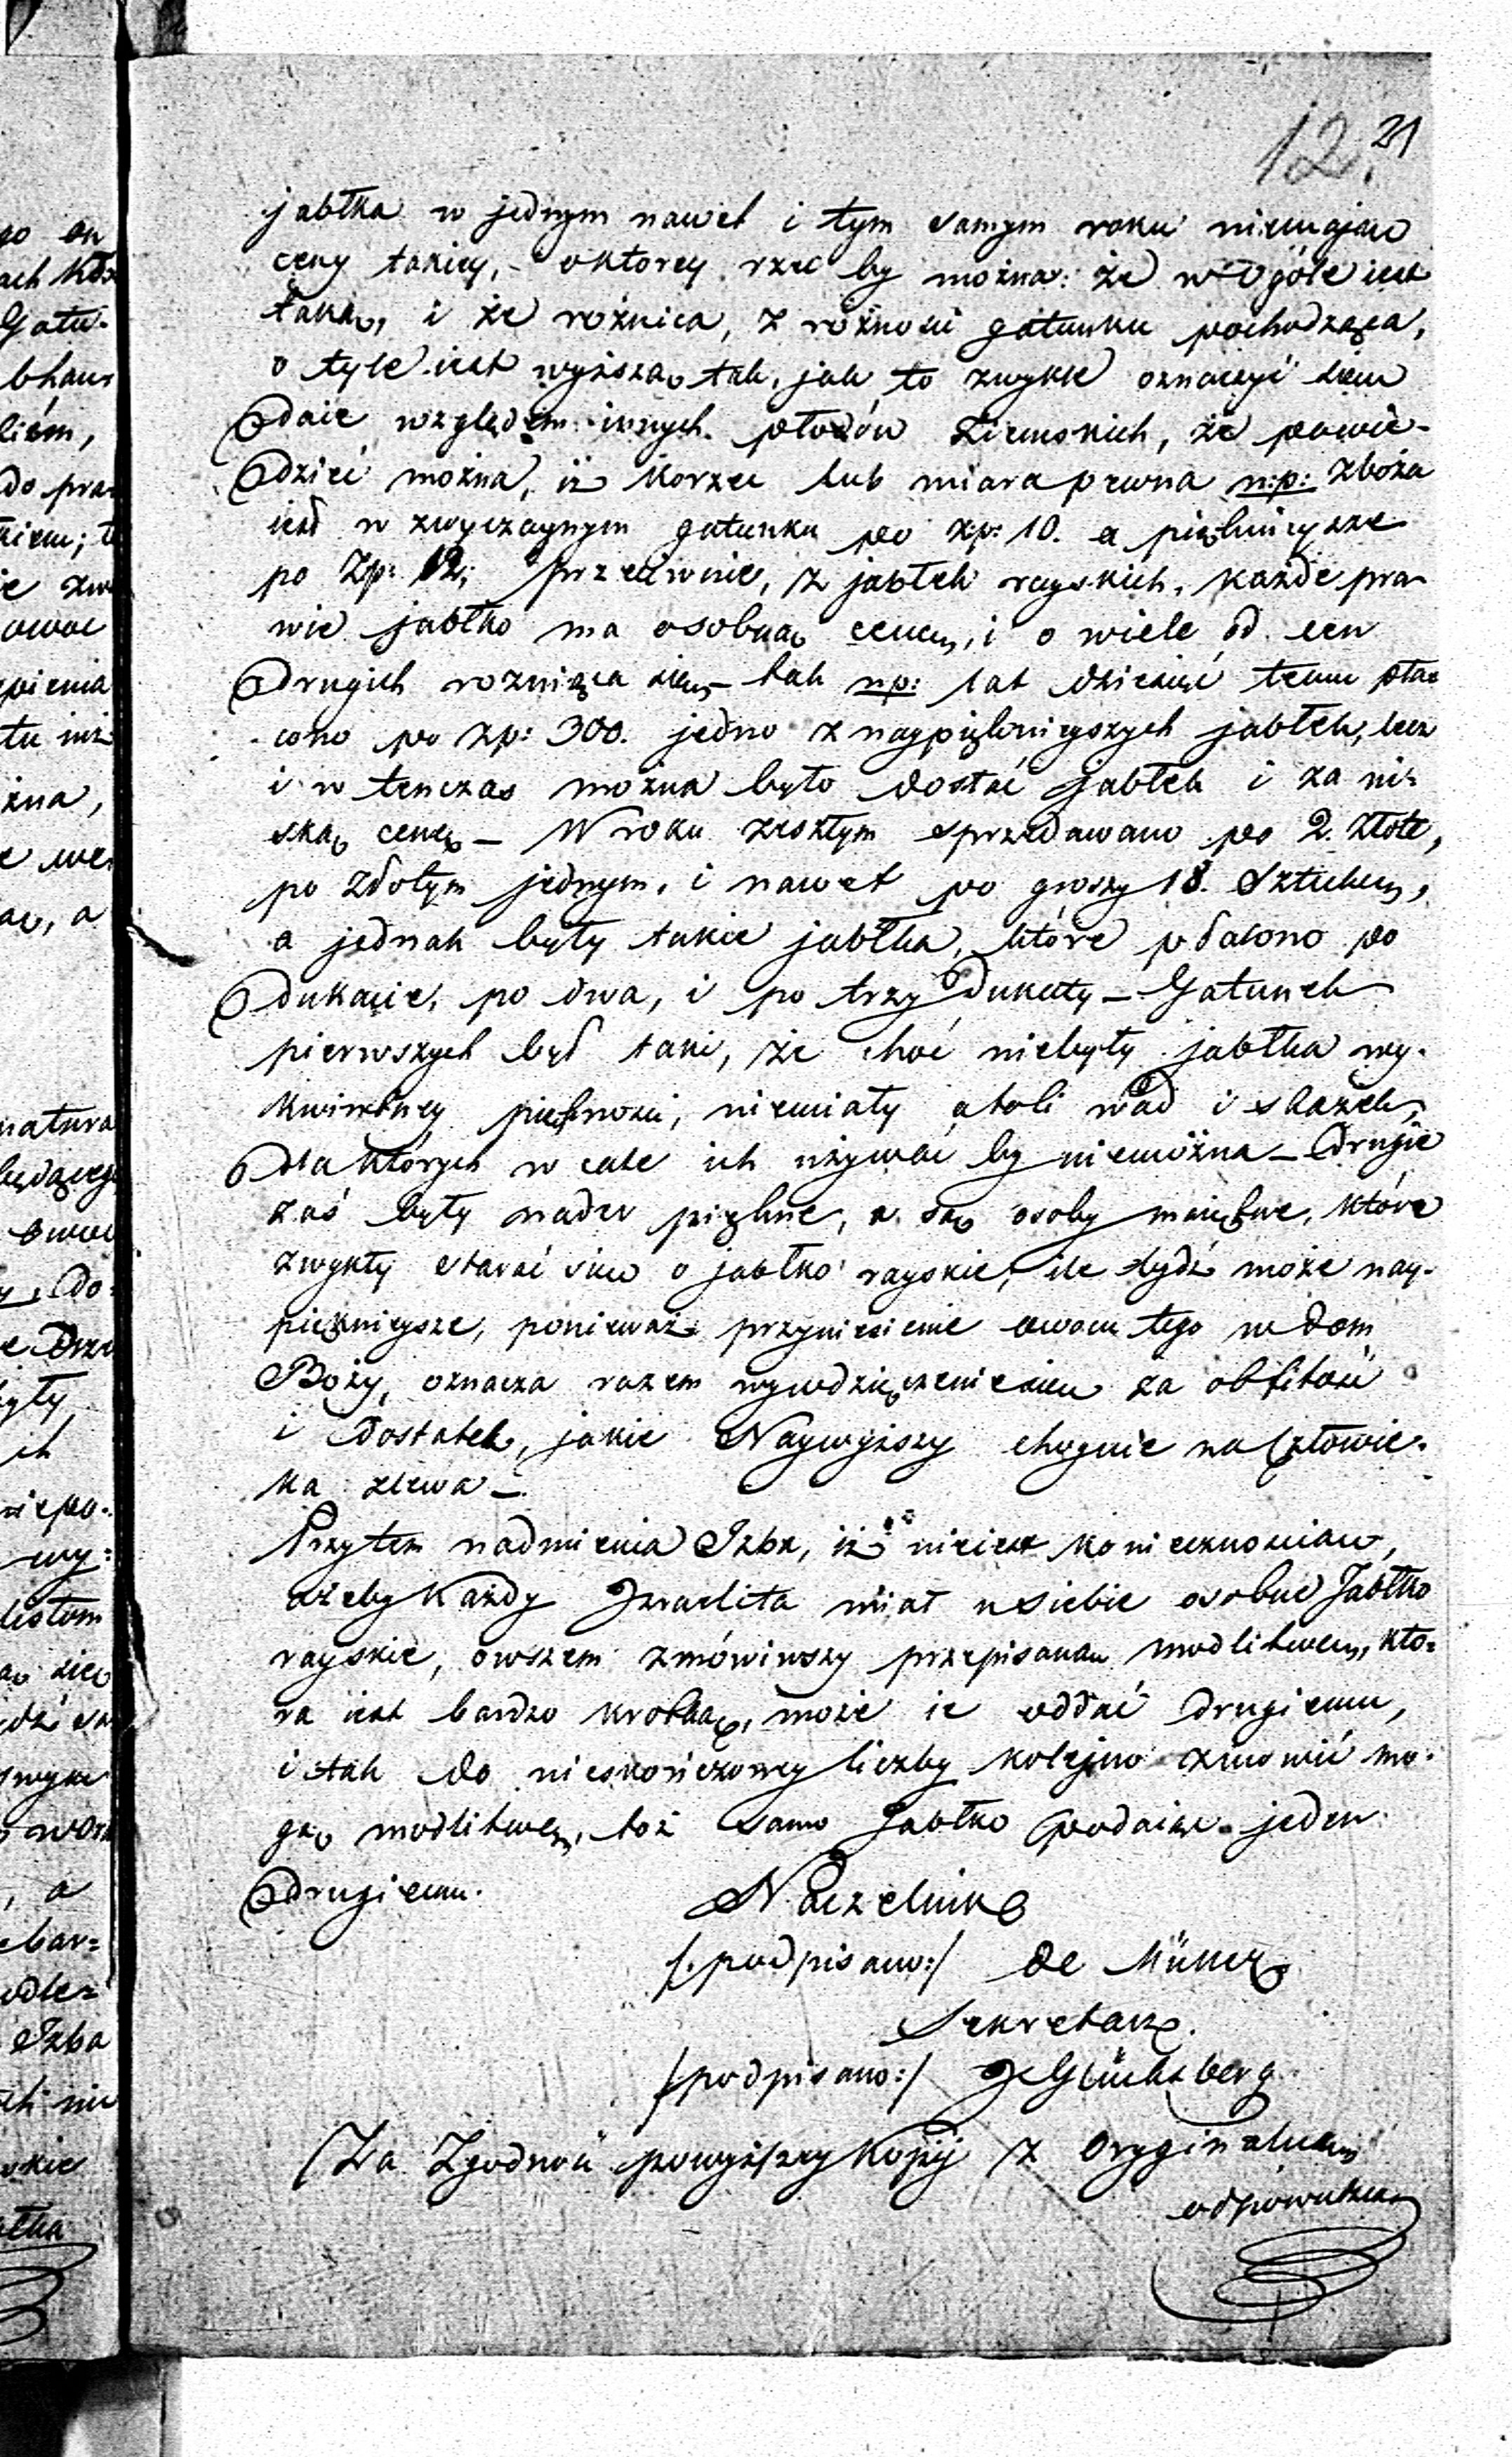 12. 21
jabłka w jednym nawet i tym samym roku niemaią
ceny takiey, – o ktorey rzec by można: że w ogóle iest
taką, i że różnica, z różności gatunku pochodząca,
o tyle iest wyższą, tak, jak to zwykle oznaczyć się
daie względem innych płodów Ziemskich, że powie-
dzieć można, iż korzec lub miara pewna n:p: zboża
iest w zwyczaynym gatunku po zp: 10. a pięknieysze
po Zp: 12; przeciwnie, z jabłek rayskich, każde pra-
wie jabłko ma osobną cenę, i o wiele od cen
drugich rozniąca się – tak np: lat dziesięć temu pła-
cono po zp: 300. jedno z naypięknieyszych jabłek, lecz
i w tenczas można było dostać jabłek i za ni-
ską cenę – W roku zeszłym sprzedawano po 2. złote,
po złotym jednym, i nawet po groszy 18. Sztukę,
a jednak były takie jabłka, które płacono po
dukacie, po dwa, i po trzy Dukaty – Gatunek
pierwszych był taki, że choć niebyły jabłka wy-
kwintney piękności, niemiały atoli wad i skazek,
dla których w cale ich używać by niemożna – drugie
zaś były nader piękne, a są osoby maiętne, które
zwykły starać się o jabłko rayskie, ile bydź może nay-
pięknieysze, ponieważ przyniesienie owocu tego w dom
Boży, oznacza razem wywdzięczenie się za obfitość
i dostatek, jakie Naywyższy choynie na Człowie-
ka zlewa –
Przytem nadmienia Izba, iż nieiest koniecznością,
ażeby każdy Izraelita miał u siebie osobne Jabłko
rayskie, owszem zmówiwszy przepisaną modlitwę, któ-
ra iest bardzo krótką, może ie oddać drugiemu,
i tak do nieskończoney liczby kolejno zmówić mo-
gą modlitwę, toż samo Jabłko podaiąc jeden
drugiemu.
Naczelnik
/:podpisano:/ de Müner
Sekretarz.
/podpisano:/ J Glücksberg
Za Zgodność powyższey Kopij z Oryginałem
odpowiedzialny